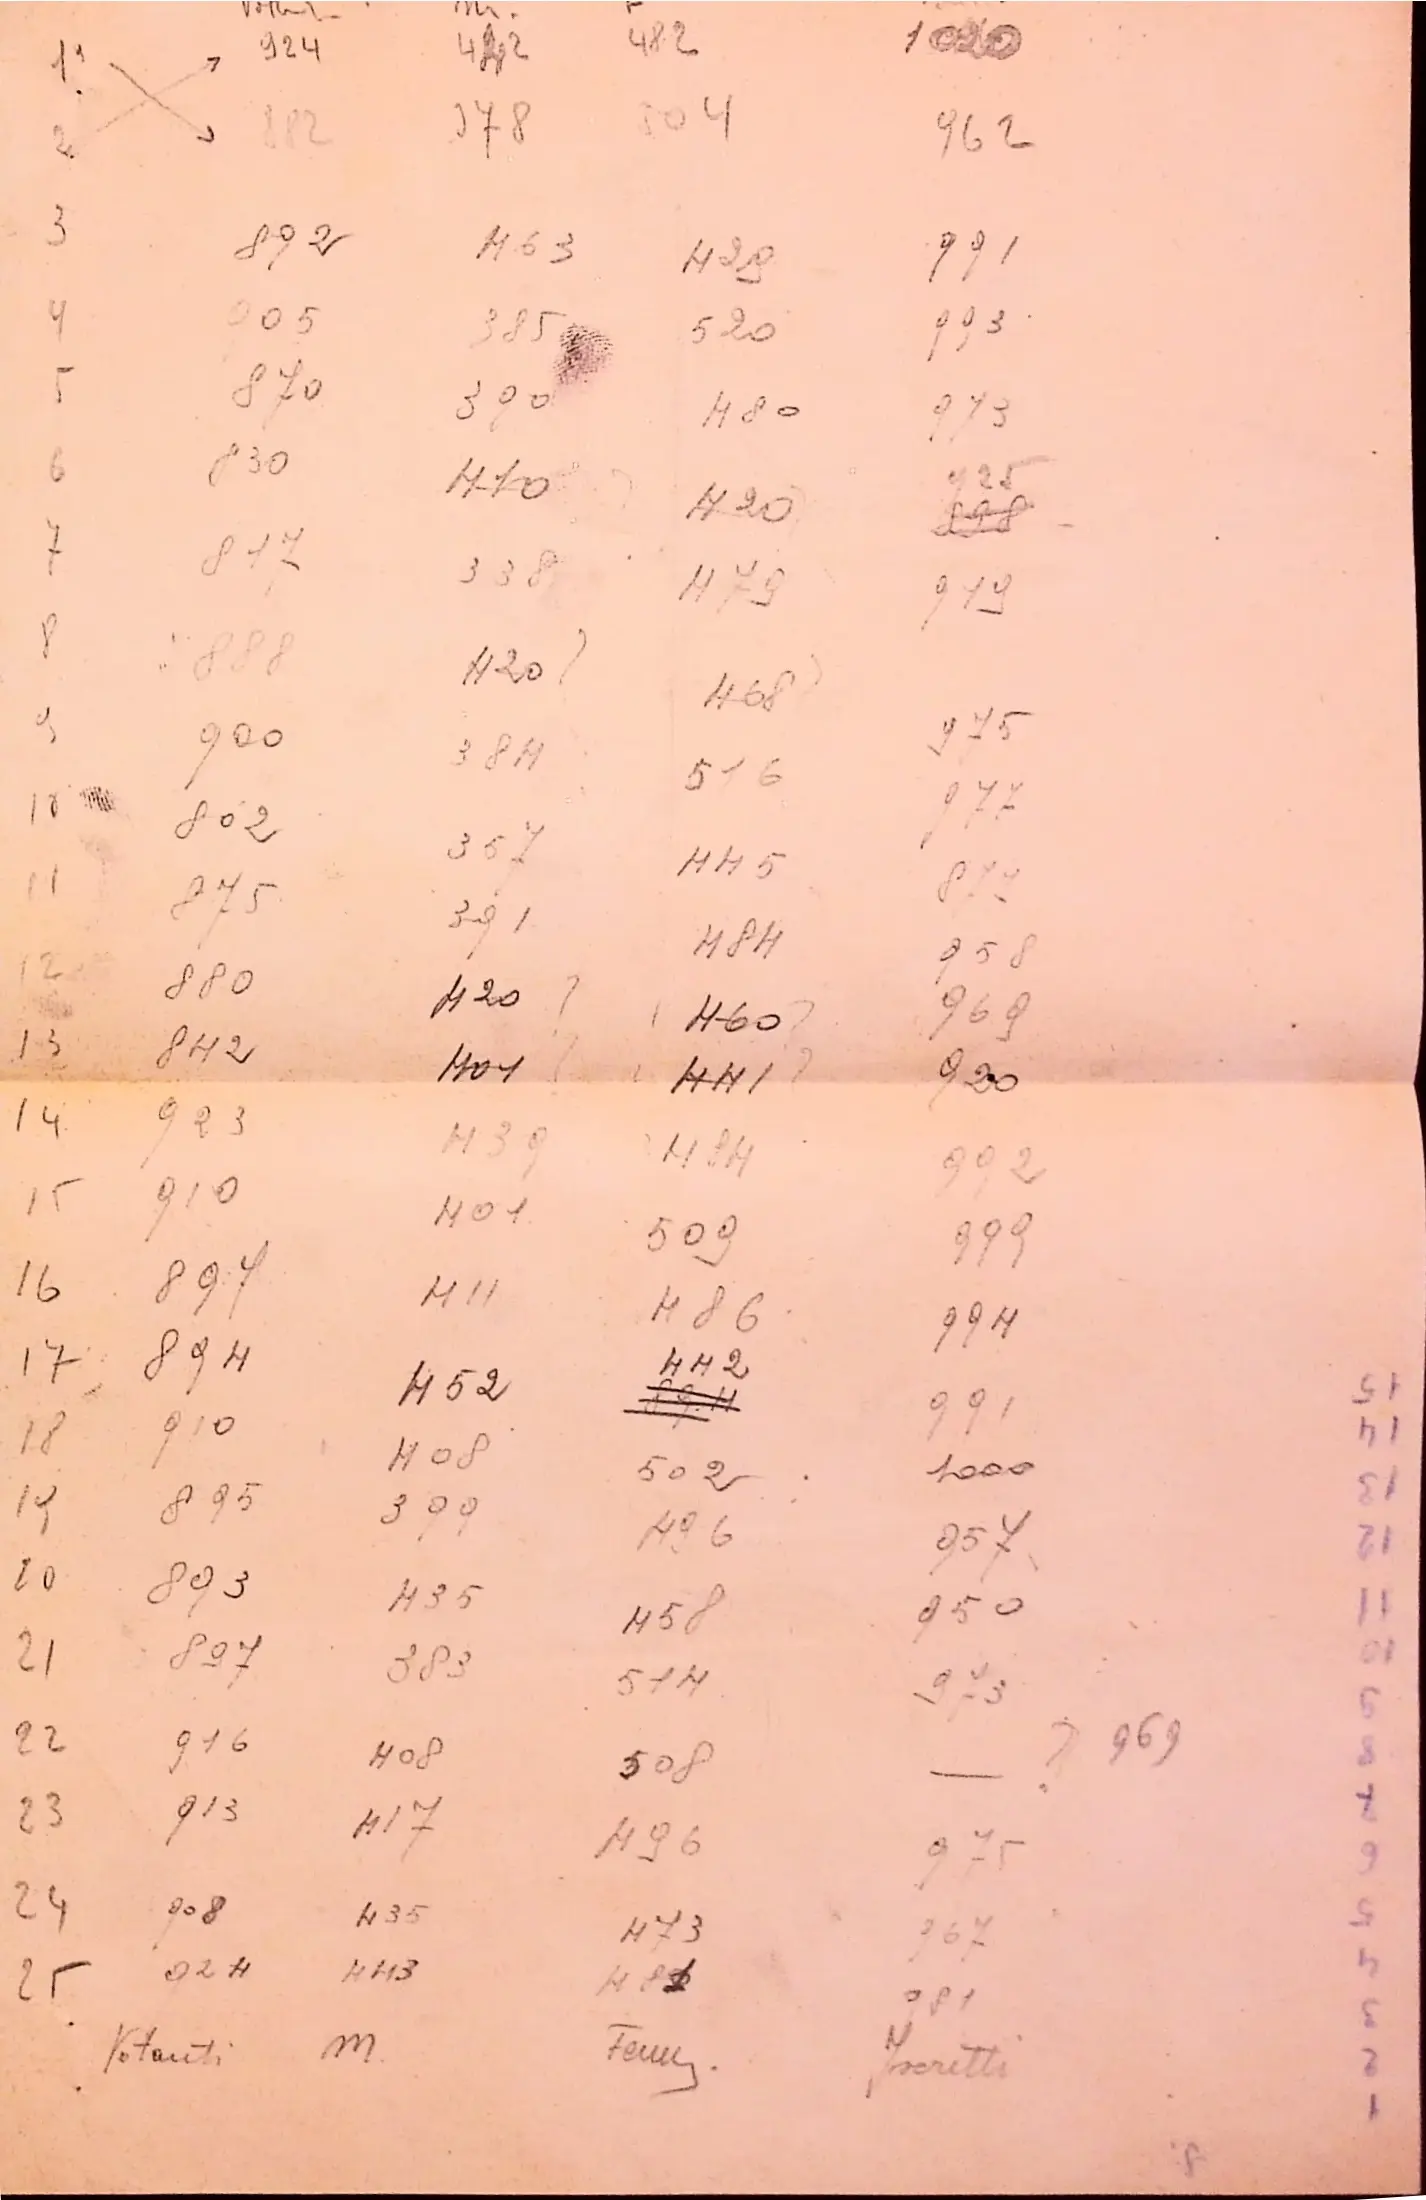 1º 924 442 482 1020
2 882 378 504 962
3 892 463 429 991
4 905 385 520 993
5 870 390 480 973
6 830 410 420 925
898
7 817 338 479 919
8 888 420 ? 468 ? 975
9 900 384 516 977
10 802 357 445 877
11 875 391 484 958
12 880 420 ? 460 ? 969
13 842 401 ? 441 ? 920
14 923 439 484 992
15 910 401 509 999
16 897 411 486 994
17 894 452 442 991
894
18 910 408 502 1000
19 895 399 496 957
20 893 435 458 950
21 897 383 514 973
22 916 408 508 — ? 969
23 913 417 496 975
24 908 435 473 967
25 924 443 481 981
Votanti M. Femm. Iscritti
15
14
13
12
11
10
9
8
7
6
5
4
3
2
1